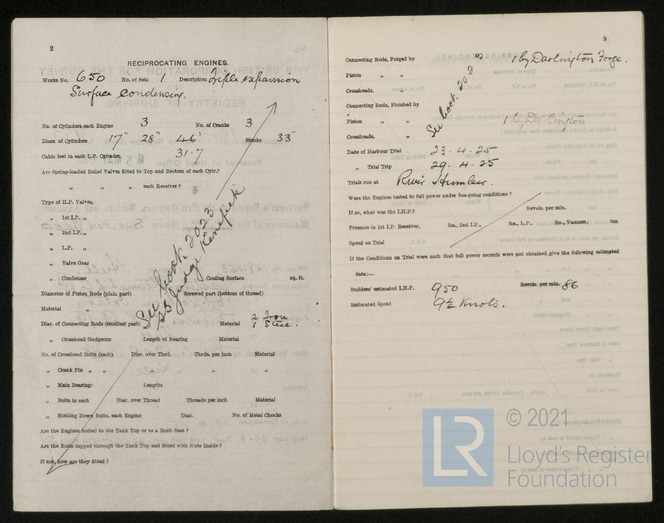 2
RECIPROCATING ENGINES.
Works No. 650 No. of Sets 1 Description Triple expansion
Surface condensing.
No. of Cylinders each Engine 3 No. of Cranks 3
Diars of Cylinders 17" 28" 46" Stroke 33"
Cubic feet in each L.P. Cylinder 31.7
Are Spring-loaded Relief Valves fitted to Top and Bottom of each Cylr.?
" " " each Receiver?
Type of H.P. Valves,
" 1st I.P. "
" 2nd I.P. "
" L.P. "
" Valve Gear
" Condenser Cooling Surface sq. ft.
Diameter of Piston Rods (plain part) Screwed part (bottom of thread)
Material "
Diar. of Connecting Rods (smallest part) Material 2 Iron
1 Steel.
" Crosshead Gudgeons Length of Bearing Material
No. of Crosshead Bolts (each) Diar. over Thrd. Thrds. per inch Material
" Crank Pin " " " "
" Main Bearings Lengths
" Bolts in each Diar. over Thread Threads per inch Material
" Holding Down Bolts, each Engine Diar. No. of Metal Chocks
Are the Engines bolted to the Tank Top or to a Built Seat?
Are the Bolts tapped through the Tank Top and fitted with Nuts Inside?
If not, how are they fitted?
See book 2023
SS Judge Kenefick
3
Connecting Rods, Forged by 1 by Darlington Forge.
Piston " "
Crossheads, "
Connecting Rods, Finished by
Piston " " 1 by Darlington
Crossheads, "
See book 2023
Date of Harbour Trial 23.4.25
" Trial Trip 29.4.25
Trials run at River Humber.
Were the Engines tested to full power under Sea-going conditions?
If so, what was the I.H.P.? Revols. per min.
Pressure in 1st I.P. Receiver, lbs., 2nd I.P., lbs., L.P., lbs., Vacuum, ins.
Speed on Trial
If the Conditions on Trial were such that full power records were not obtained give the following estimated
data:—
Builders' estimated I.H.P. 950 Revols. per min. 86
Estimated Speed 9½ Knots.
LR
© 2021
Lloyd's Register
Foundation